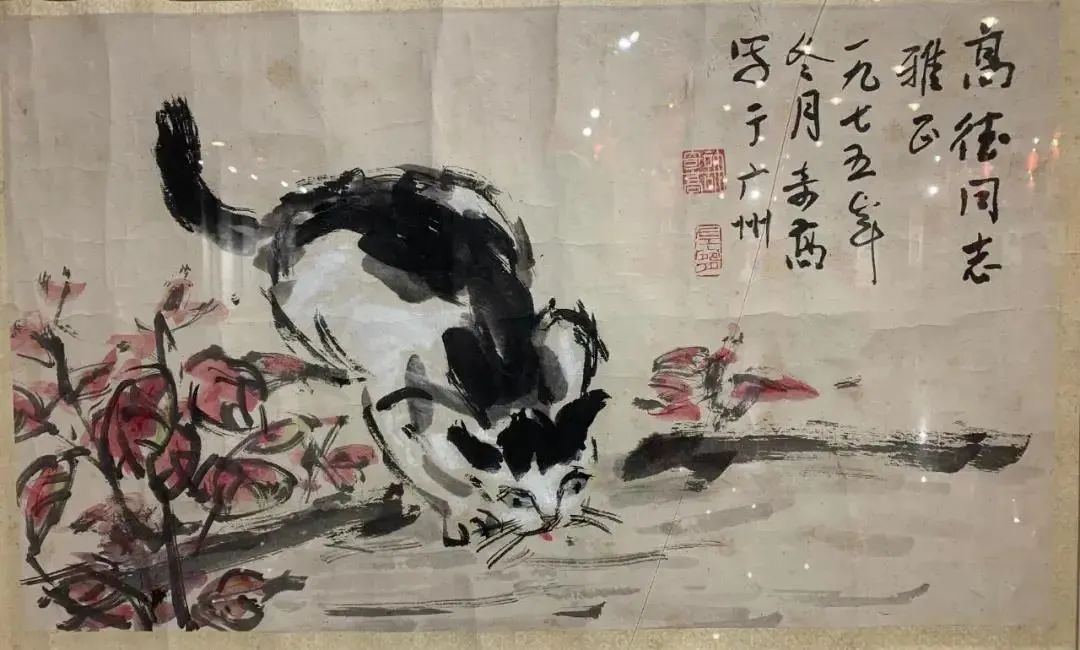 高德同志
雅正
一九七五年
冬月 高
写于广州